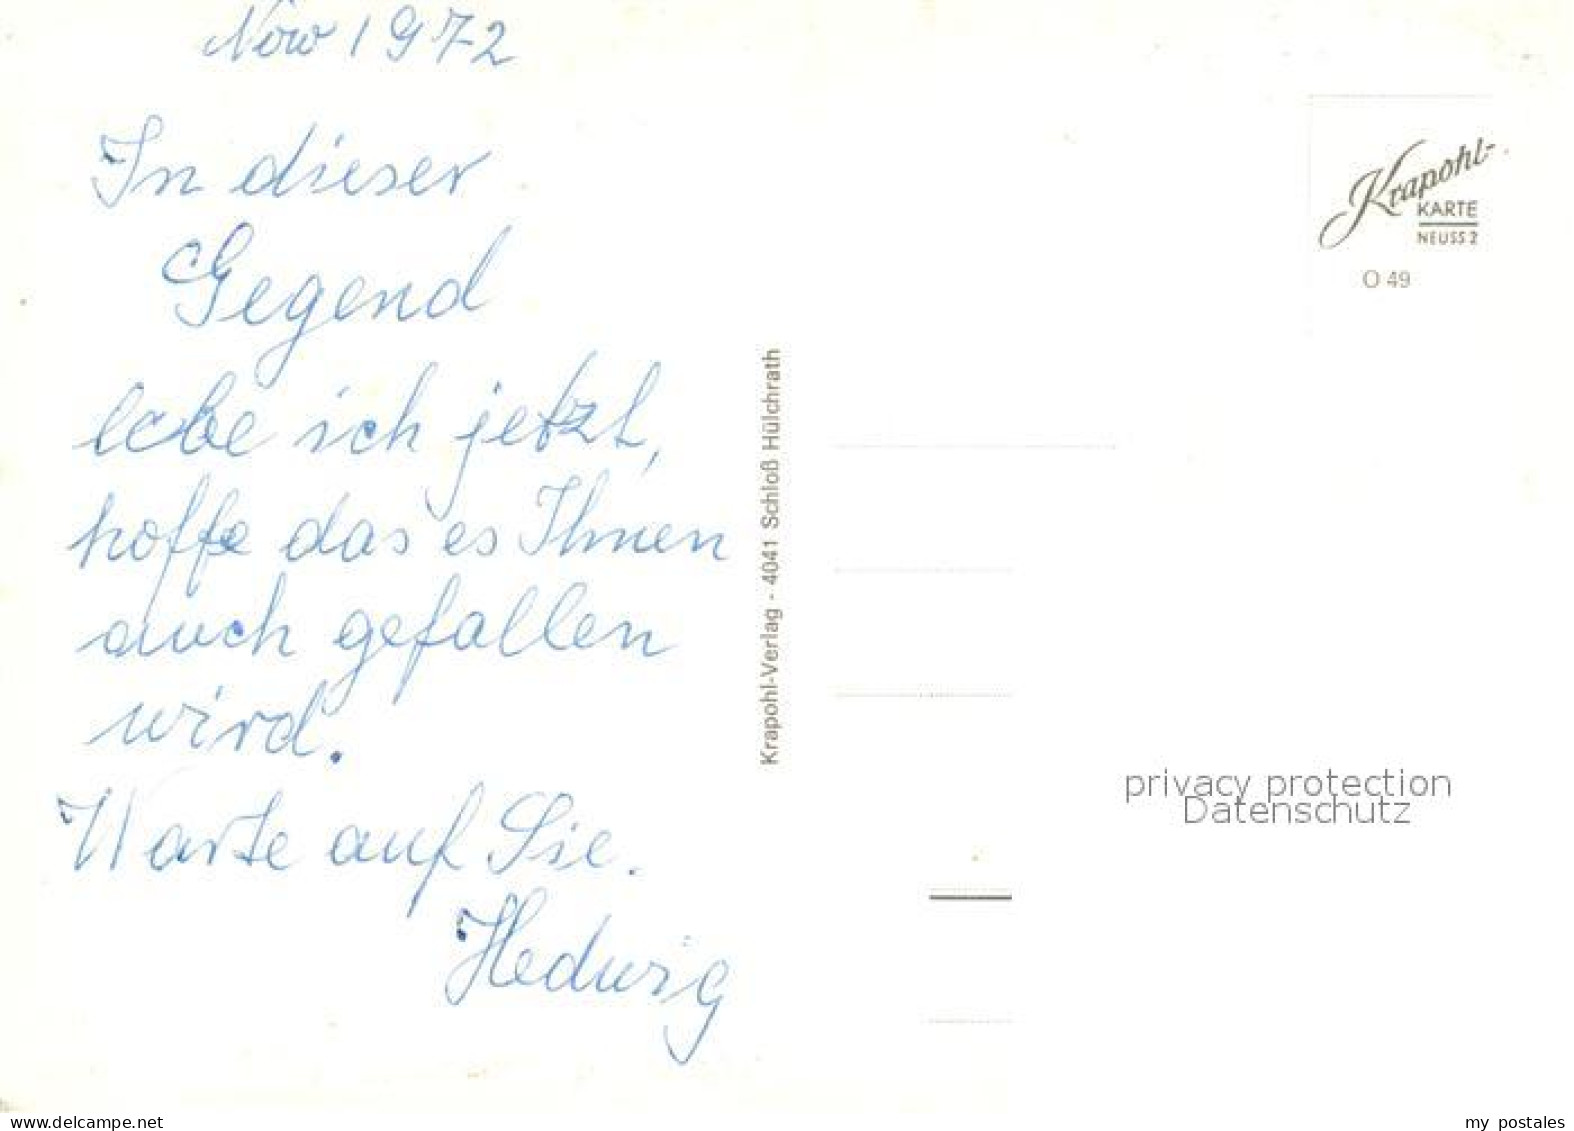 Nov 1972
In dieser
Gegend
lebe ich jetzt,
hoffe das es Ihnen
auch gefallen
wird.
Warte auf Sie.
Hedwig
Krapohl-Verlag - 4041 Schloß Hülchrath
Krapohl-
KARTE
NEUSS 2
O 49
privacy protection
Datenschutz
www.delcampe.net
my_postales